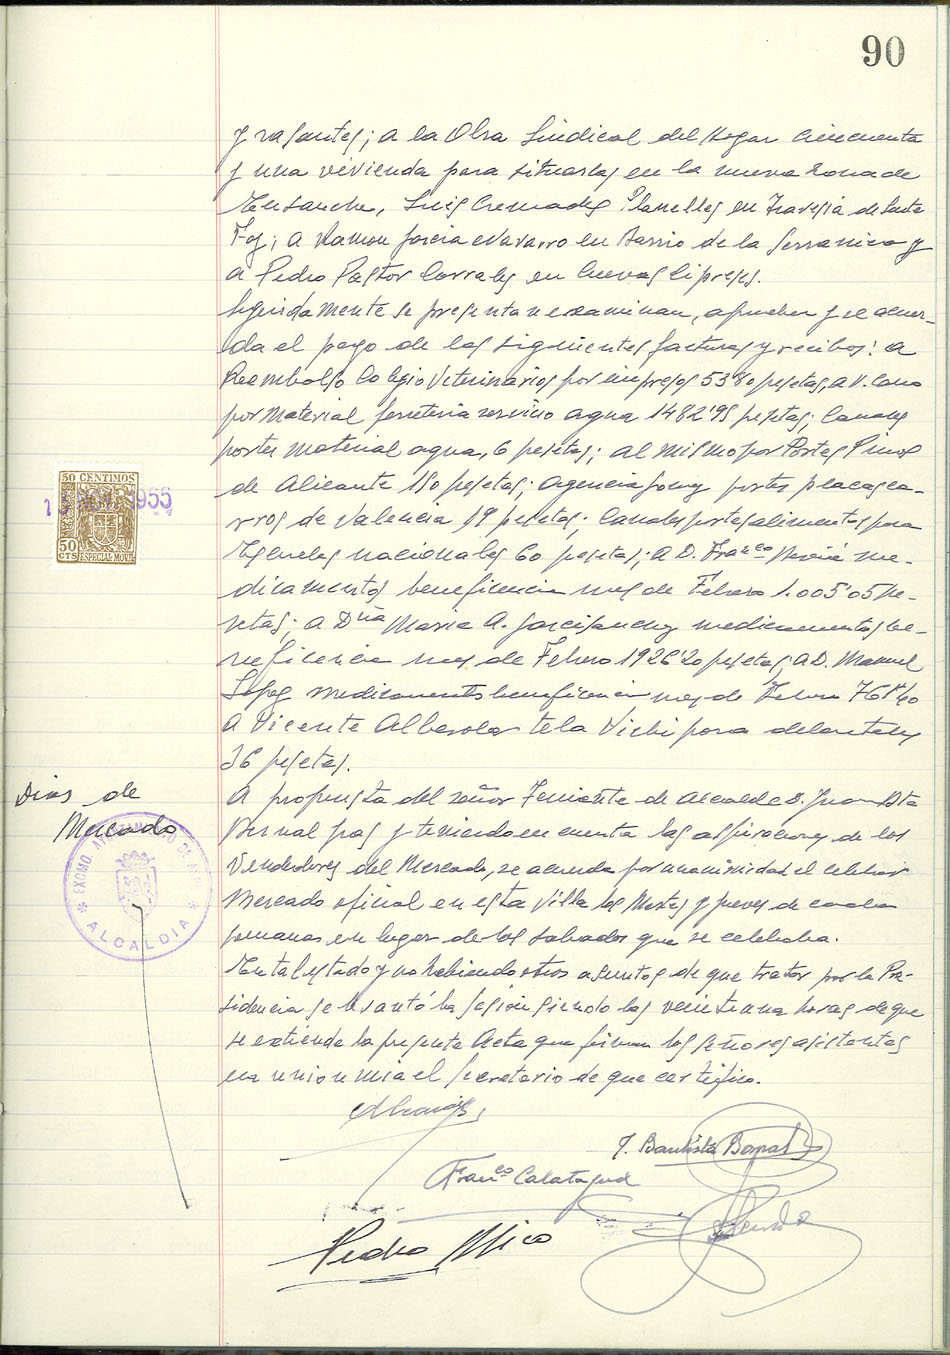 90
y rasantes; a la Obra Sindical del Hogar cincuenta
y una vivienda para situarlas en la nueva zona de
Ensanche, Luis Cremades Planelles en Travesia de Santa
Faz; a Ramon Garcia Navarro en Barrio de la Serranica y
a Pedro Pastor Corrales en Cuevas Cipreses.
Seguidamente se presentan examinan, aprueban y se acuer-
da el pago de las siguientes facturas y recibos: a
Reembolso Colegio Veterinarios por impresos 53'80 pesetas, a V. Cano
por Material ferreteria servicio agua 1482'95 pesetas; Canales
portes material agua, 6 pesetas; al mismo por Portes Pinos
de Alicante 150 pesetas; Agencia portes placas ca-
rros de Valencia 19 pesetas; Canales portes alimentos para
Escuelas nacionales 60 pesetas; a D. Franco me-
dicamentos beneficencia mes de Febrero 1.005'05 pe-
setas; a Dña Maria A. Garcisanchez medicamentos be-
neficencia mes de Febrero 1926'20 pesetas; a D. Manuel
Lopez medicamentos beneficencia mes de Febrero
A Vicente Alberola tela Vichi para delantales
36 pesetas.
Dias de
Mercado
A propuesta del señor Teniente de Alcalde D. Juan Bta
Bernal y teniendo en cuenta las aspiraciones de los
Vendedores del Mercado, se acuerda por unanimidad el celebrar
Mercado oficial en esta Villa los Martes y jueves de cada
semana en lugar de los sabados que se celebraba.
En tal estado y no habiendo otros asuntos de que tratar por la Pre-
sidencia se levantó la sesión siendo las veintiuna horas de que
se extiende la presente Acta que firman los señores asistentes
en union mia el Secretario de que certifico.
J. Bautista Bernal
Franco Calatayud
Pedro Mico
50 CENTIMOS
NOV. 1955
50
CTS
ESPECIAL MOVIL
EXCMO. AYUNTAMIENTO DE
ALCALDIA